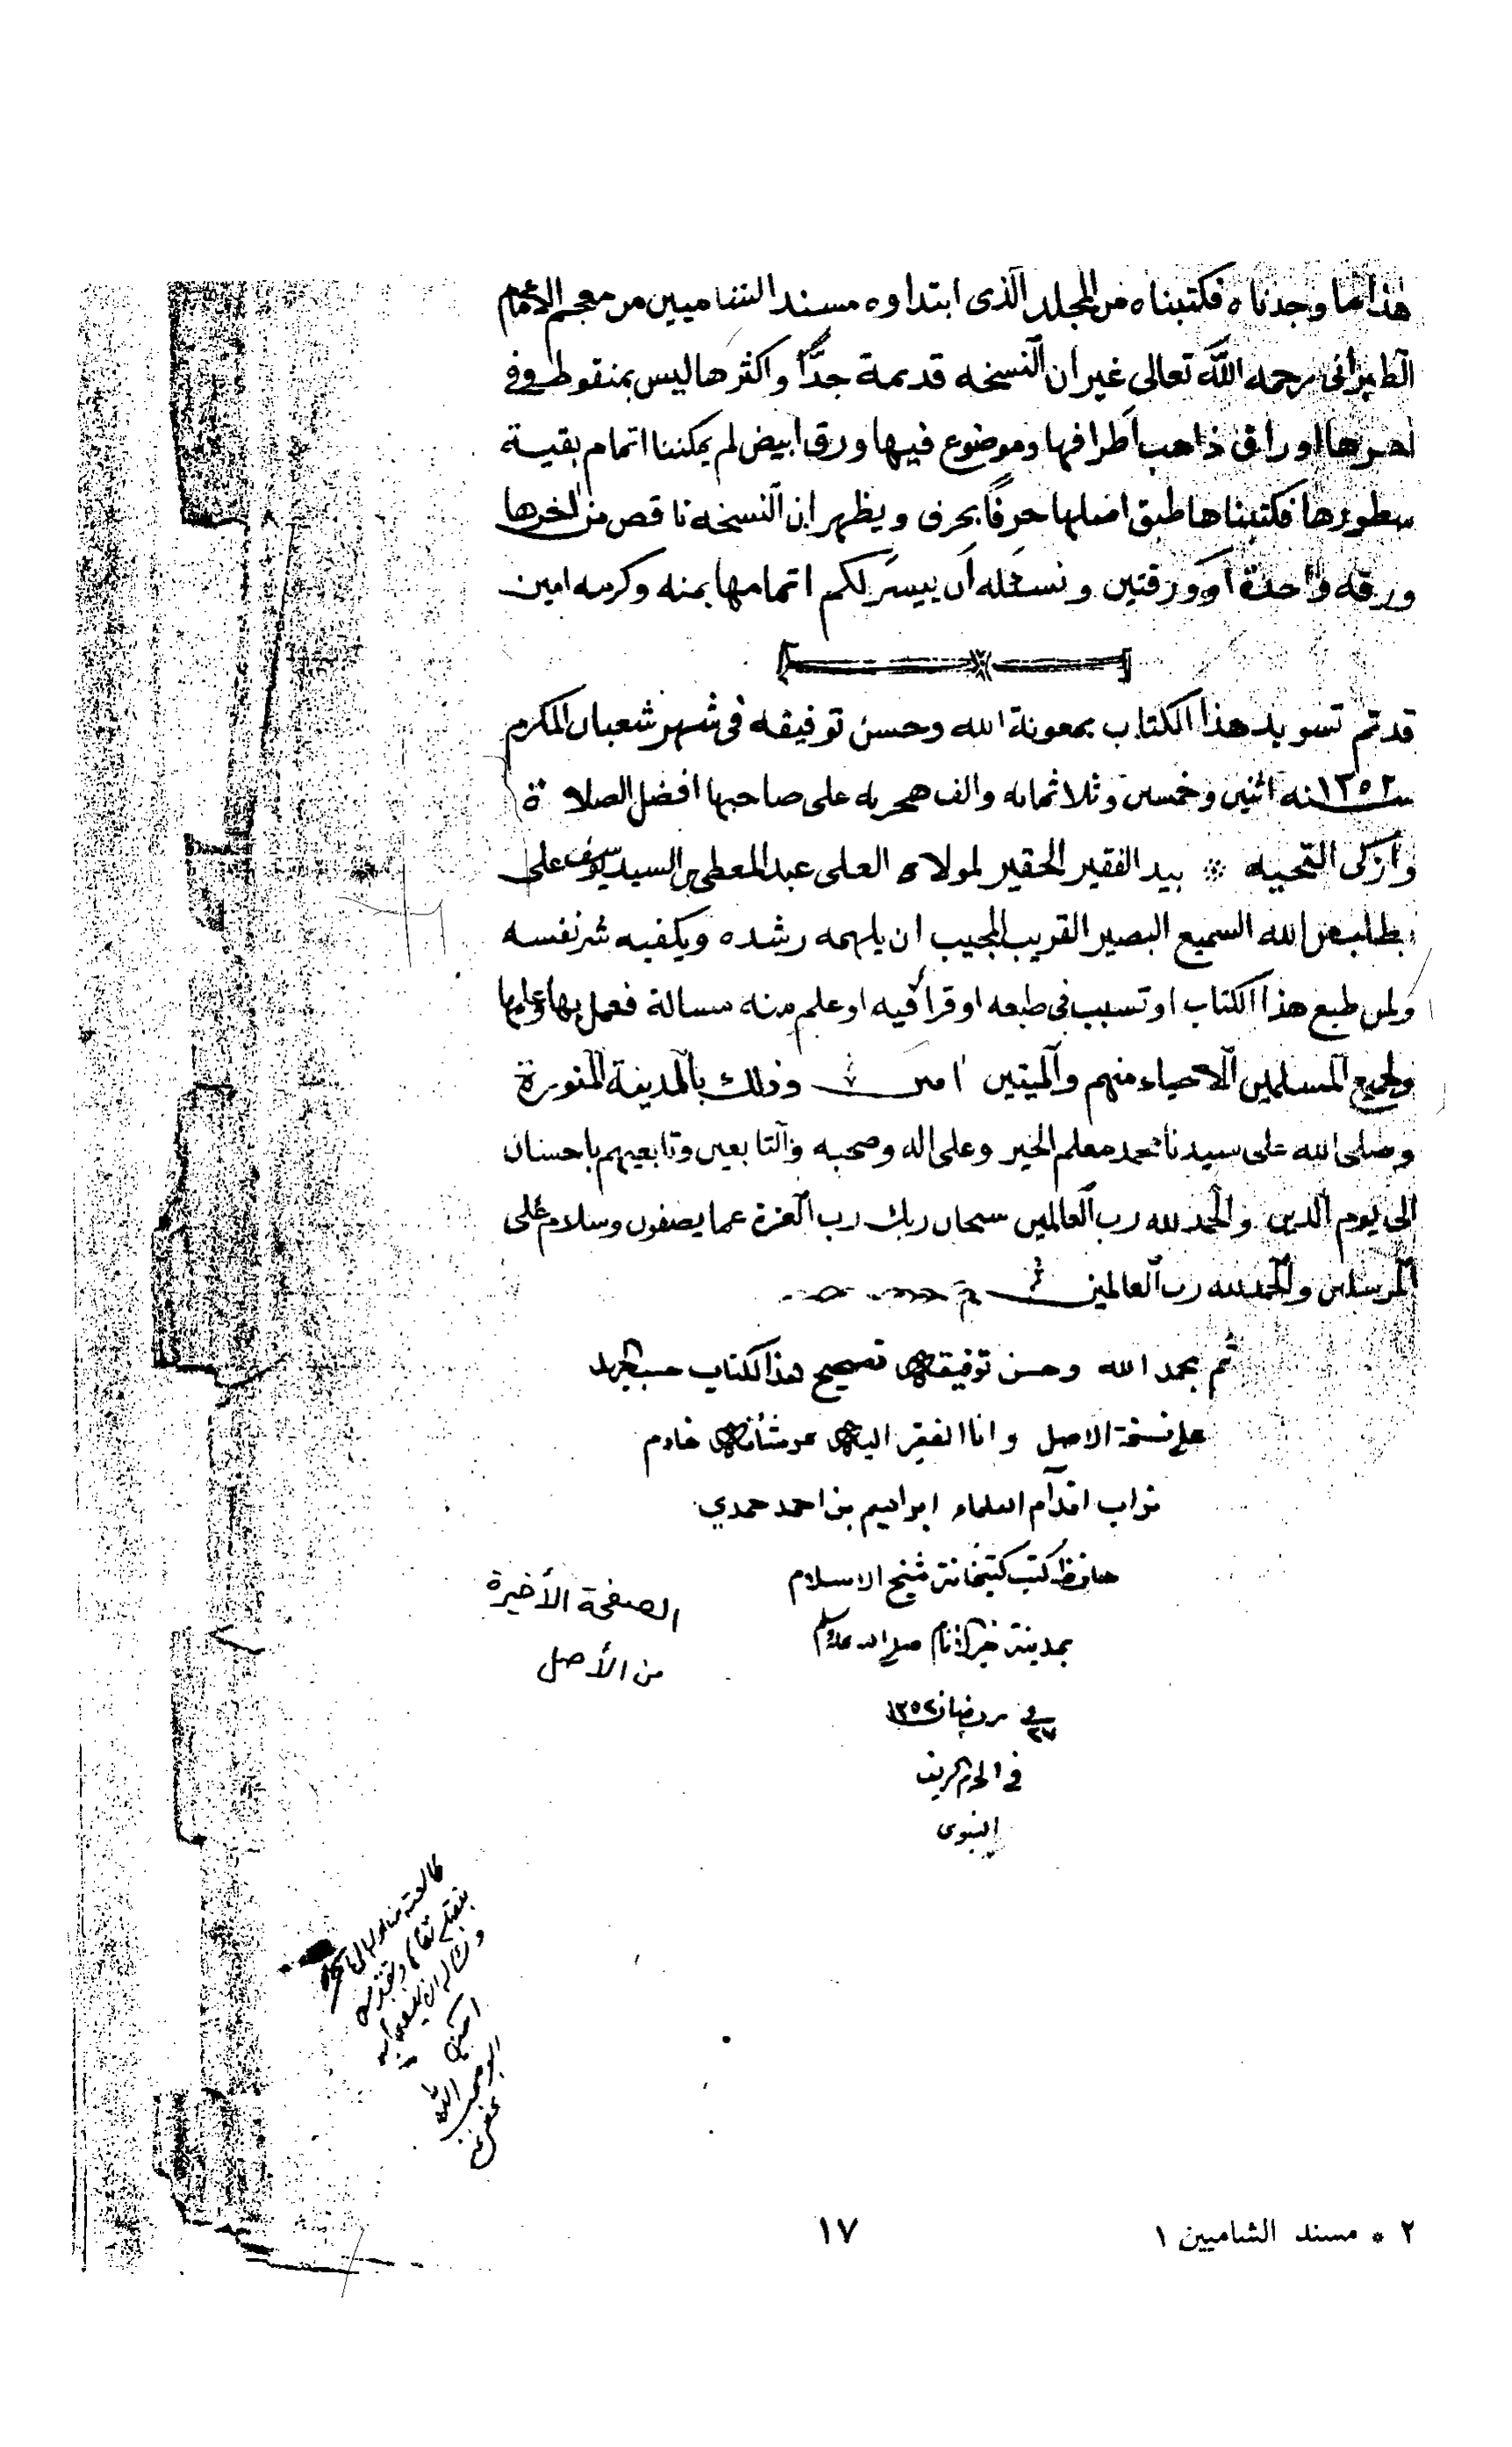 هذا ما وجدناه فكتبناه من المجلد الذى ابتداوه مسند الشاميين من معجم الامام
الطبرانى رحمه الله تعالى غير ان النسخه قديمة جدًّا واكثرها ليس بمنقوط وفى
اخرها اوراق ذاهب اطرافها وموضوع فيها ورق ابيض لم يمكننا اتمام بقية
سطورها فكتبناها طبق اصلها حرفًا بحرف ويظهر ان النسخه ناقص من اخرها
ورقه واحدة او ورقتين ونسئله ان ييسر لكم اتمامها بمنه وكرمه امين
قد تم تسويد هذا الكتاب بمعونة الله وحسن توفيقه فى شهر شعبان المكرم
سنه ١٣٥٢ اثنين وخمسين وثلاثمايه والف هجريه على صاحبها افضل الصلاة
وازكى التحيه * بيد الفقير الحقير لمولاه العلى عبد المعطى بن السيد يوسف على
يطلب من الله السميع البصير القريب المجيب ان يلهمه رشده ويكفيه شر نفسه
ولمن طبع هذا الكتاب او تسبب فى طبعه او قرأ فيه او علم منه مسالة فعمل بها
ولجميع المسلمين الاحياء منهم والميتين امين وذلك بالمدينة المنورة
وصلى الله على سيدنا محمد معلم الخير وعلى اله وصحبه والتابعين وتابعيهم باحسان
الى يوم الدين والحمد لله رب العالمين سبحان ربك رب العزة عما يصفون وسلام على
المرسلين والحمد لله رب العالمين
تم بحمد الله وحسن توفيقه تصحيح هذا الكتاب
على نسخة الاصل وانا الفقير اليه عز شأنه خادم
تراب اقدام العلماء ابراهيم بن احمد حمدي
حافظ كتب كتبخانة شيخ الاسلام
بمدينة خير الانام صلى الله عليه وسلم
فى ٢٧ رمضان ١٣٥٢
فى الحرم الشريف
النبوى
الصفحة الأخيرة
من الأصل
٢ * مسند الشاميين ١
١٧